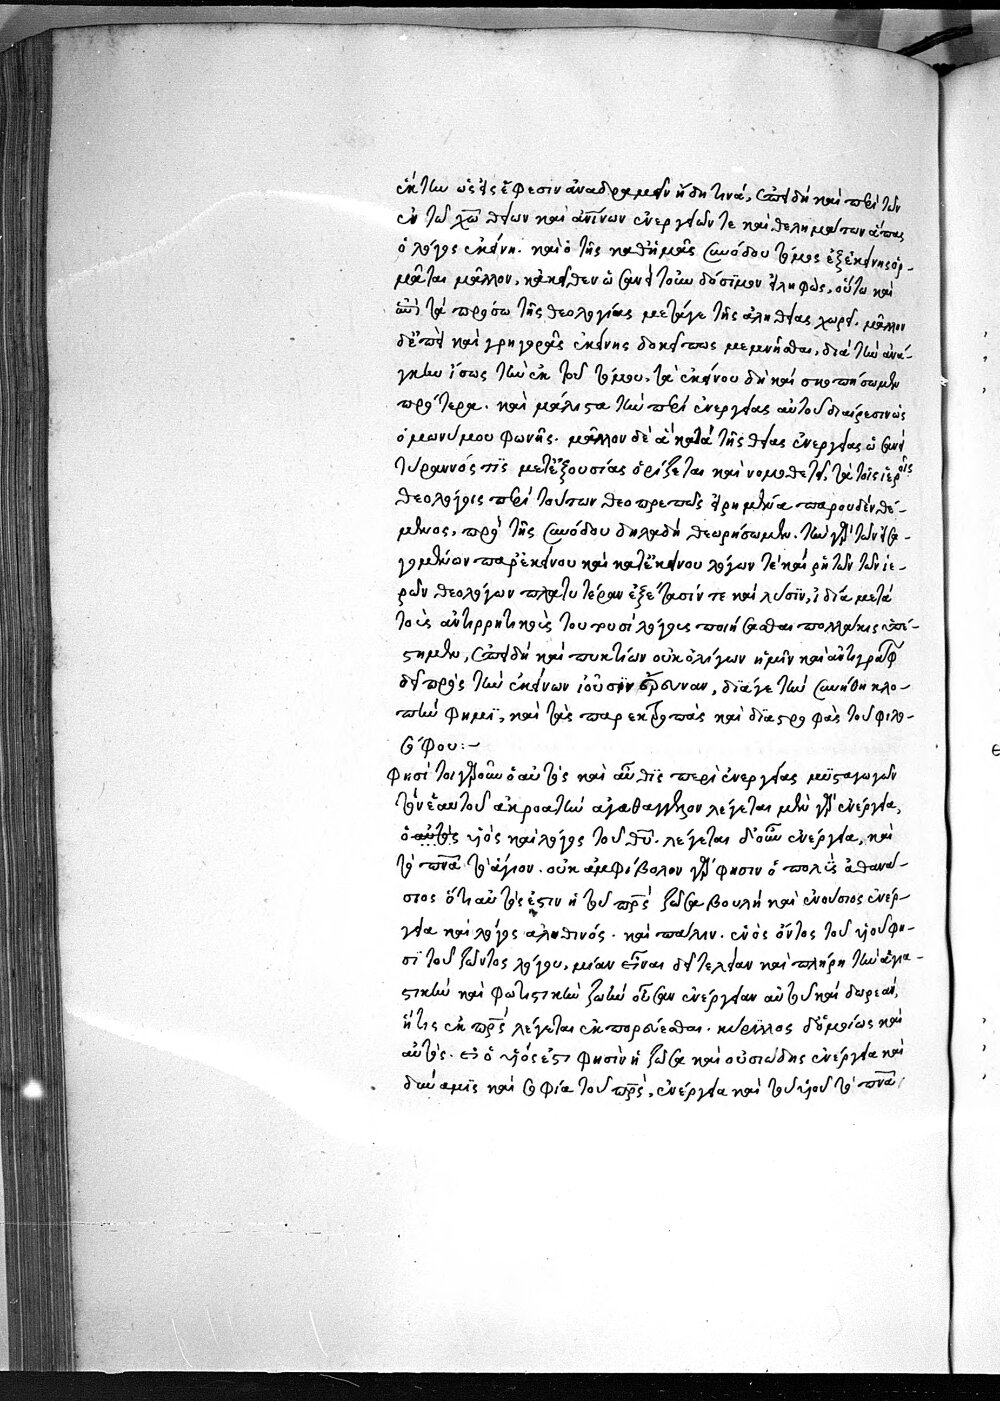 ἐκτὴν ὡς εἰς ἔφεσιν ἀναδραμεῖν ἤδη τινά, ἐπειδὴ καὶ περὶ τῶν
ἐν τῶ χῶ θείων καὶ ἀνίνων ἐνεργειῶν τε καὶ θελημάτων ἅπας
ὁ λόγος ἐκείνη. καὶ ὁ τῆς καθημᾶς συνόδου τόμος ἐξεκείνης ὁρ-
μᾶται μᾶλλον, κἀκεῖθεν τὸ δόσιμον εἰληφὼς, οὕτω καὶ
τὰ πρόσω τῆς θεολογίας μετάγει τῆς ἀληθείας χωρεῖ. μᾶλλον
δέ που καὶ γρηγορᾶς ἐκείνης δοκεῖ πως μεμνῆσθαι, διὰ τὴν ἀνά-
γκην ἴσως τὴν ἐκ τοῦ τόμου, τὰ ἐκείνου δὴ καὶ σκοπήσωμεν
πρότερα. καὶ μάλιστα τὴν περὶ ἐνεργείας αὐτοῦ διαίρεσιν ὡς
ὁμωνύμου φωνῆς. μᾶλλον δὲ ἃ κατὰ τῆς θείας ἐνεργείας
τύραννός τις μετεξουσίας ὁρίζεται καὶ νομοθετεῖ, τὰ τοῖς ἱεροῖς
θεολόγοις περὶ τούτων θεοπρεπῶς εἰρημένα παρουδὲν θέ-
μενος, πρὸ τῆς συνόδου δηλαδὴ θεωρήσωμεν. τὴν γὰρ τῶν εἰσα-
γομένων παρἐκείνου καὶ κατἐκείνου λόγων τὲ καὶ ρητῶν τῶν ἱε-
ρῶν θεολόγων πλατυτέραν ἐξέτασίν τε καὶ λύσιν, ἰδία μετὰ
τοὺς ἀντιρρητικοὺς τουτουσὶ λόγους ποιήσασθαι πολλάκις ὑπέ-
στημεν, ἐπειδὴ καὶ πυκτίων οὐκ ὀλίγων ἡμῖν καὶ ἀντιγράφ
δεῖ πρὸς τὴν ἐκείνων ἰοῦσιν ἔρευναν, διά γε τὴν συνήθη κλο-
πὴν φημὶ, καὶ τὰς παρεκτροπὰς καὶ διαστροφὰς τοῦ φιλο-
σόφου:-
Φησὶ τοιγαροῦν ὁ αὐτὸς καὶ αὖθις περὶ ἐνεργείας μυσταγωγῶν
τὸν ἑαυτοῦ ἀκροατὴν ἀγαθάγγελον λέγεται μὲν γὰρ ἐνέργεια,
ὁ αὐτὸς υἱὸς καὶ λόγος τοῦ θυ. λέγεται δ' οὖν ἐνέργεια, καὶ
τὸ πνα τὸ ἅγιον. οὐκ ἀμφίβολον γάρ φησιν ὁ πολὺς ἀθανά-
σιος ὅτι αὐτός ἐστιν ἡ τοῦ πρς ζῶσα βουλὴ καὶ ἐνούσιος ἐνέρ-
γεια καὶ λόγος ἀληθινός. καὶ πάλιν. ἑνὸς ὄντος τοῦ υἱοῦ φη-
σὶ τοῦ ζῶντος λόγου, μίαν εἶναι δεῖ τελείαν καὶ πλήρη τὴν ἁγια-
στικὴν καὶ φωτιστικὴν ζωὴν οὖσαν ἐνέργειαν αὐτοῦ καὶ δωρεὰν,
ἥτις ἐκ πρς λέγεται ἐκπορεύεσθαι. κύριλλος δ' ὁμοίως καὶ
αὐτὸς. εἰ ὁ υἱός ἐστι φησὶν ἡ ζῶσα καὶ οὐσιώδης ἐνέργεια καὶ
δύναμις καὶ σοφία τοῦ πρς, ἐνέργεια καὶ τοῦ υἱοῦ τὸ πνα